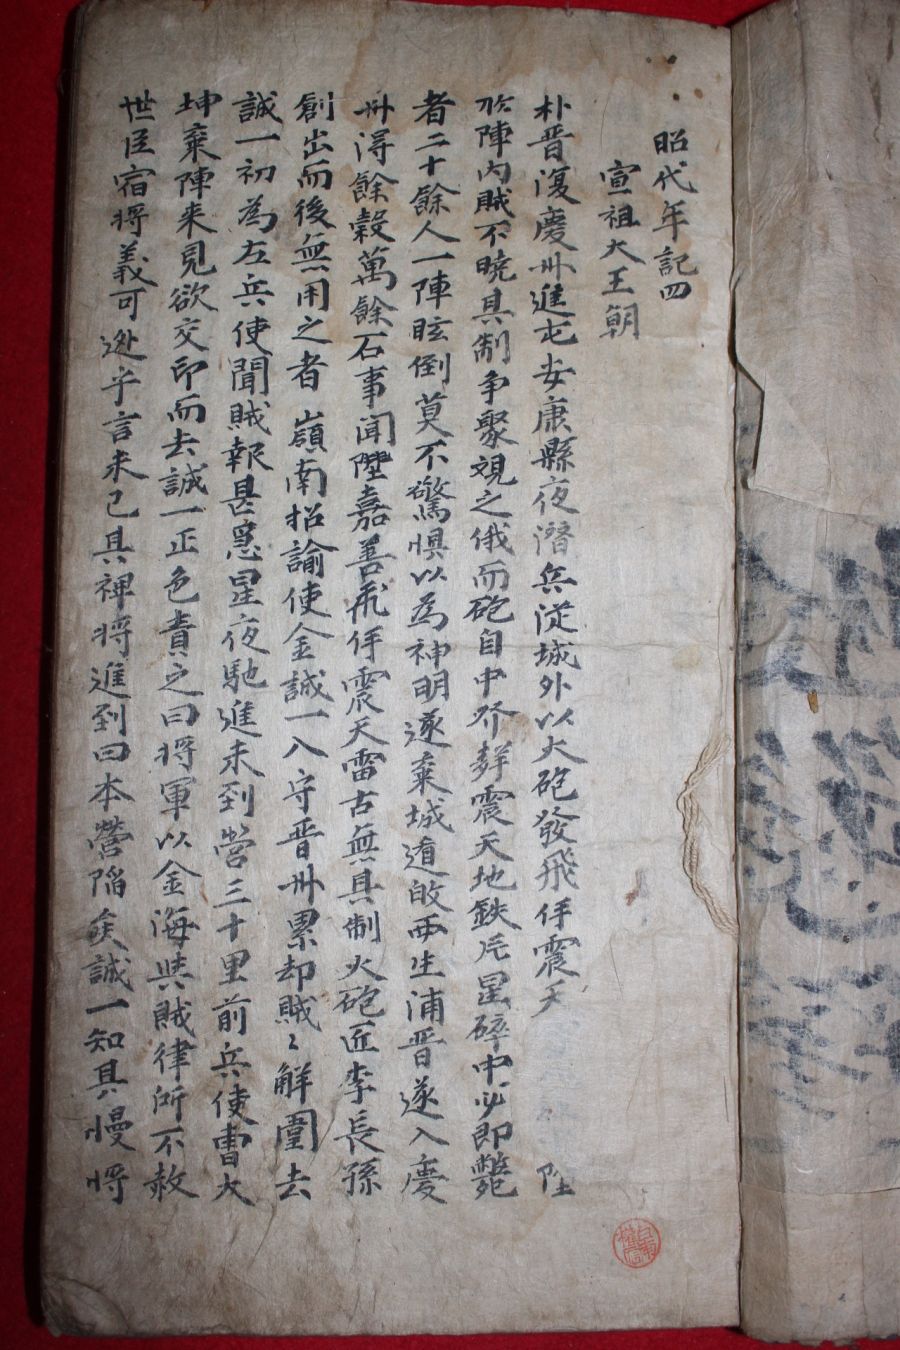 昭代年記四
宣祖大王朝
朴晋復慶州進屯安康縣夜潛兵從城外以大砲發飛伻震天 陞
於陣內賊不曉其制爭聚視之俄而砲自中發聲震天地鉄片星碎中必即斃
者二十餘人一陣眩倒莫不驚惧以爲神明遂棄城遁西生浦晋遂入慶
州得餘穀萬餘石事聞陞嘉善飛伻震天雷古無其制火砲匠李長孫
創出而後無用之者 嶺南招諭使金誠一入守晋州累却賊〻解圍去
誠一初爲左兵使聞賊報甚急星夜馳進未到營三十里前兵使曺大
坤棄陣来見欲交印而去誠一正色責之曰將軍以金海與賊律所不赦
世臣宿將義可逃乎言未已其裨將進到曰本營陷矣誠一知其慢將